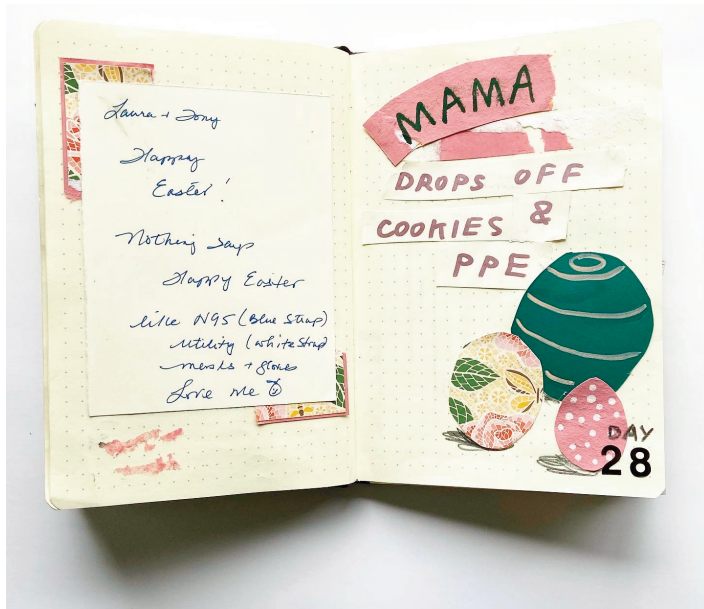 Laura + Tony
Happy
Easter!
Nothing says
Happy Easter
like N95 (Blue Strap)
utility (white Strap)
masks + gloves
Love me
MAMA
DROPS OFF
COOKIES &
PPE
DAY
28